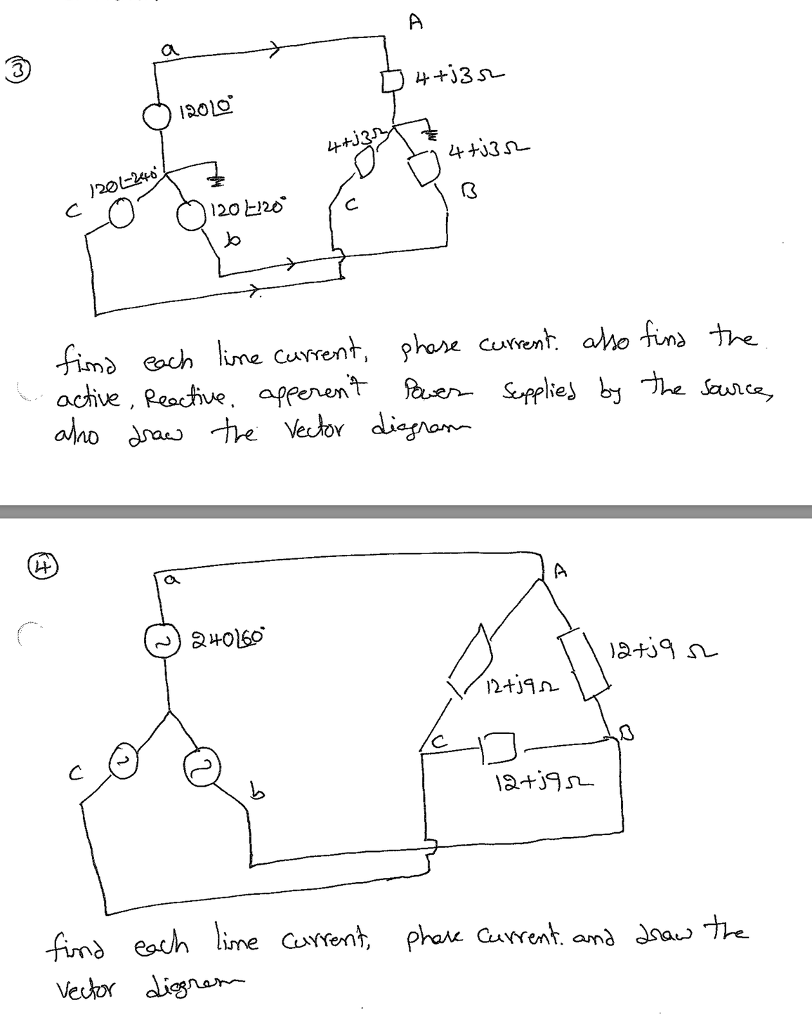 ③
a
A
120∠0°
4+j3Ω
4+j3Ω
4+j3Ω
120∠-240°
c
120∠-120°
b
C
B
find each line current, phase current. also find the
active, Reactive, apperent Power Supplied by the Source,
also draw the Vector diagram
④
a
A
240∠60°
12+j9 Ω
12+j9Ω
c
b
C
B
12+j9Ω
find each line current, phase current. and draw the
Vector diagrem